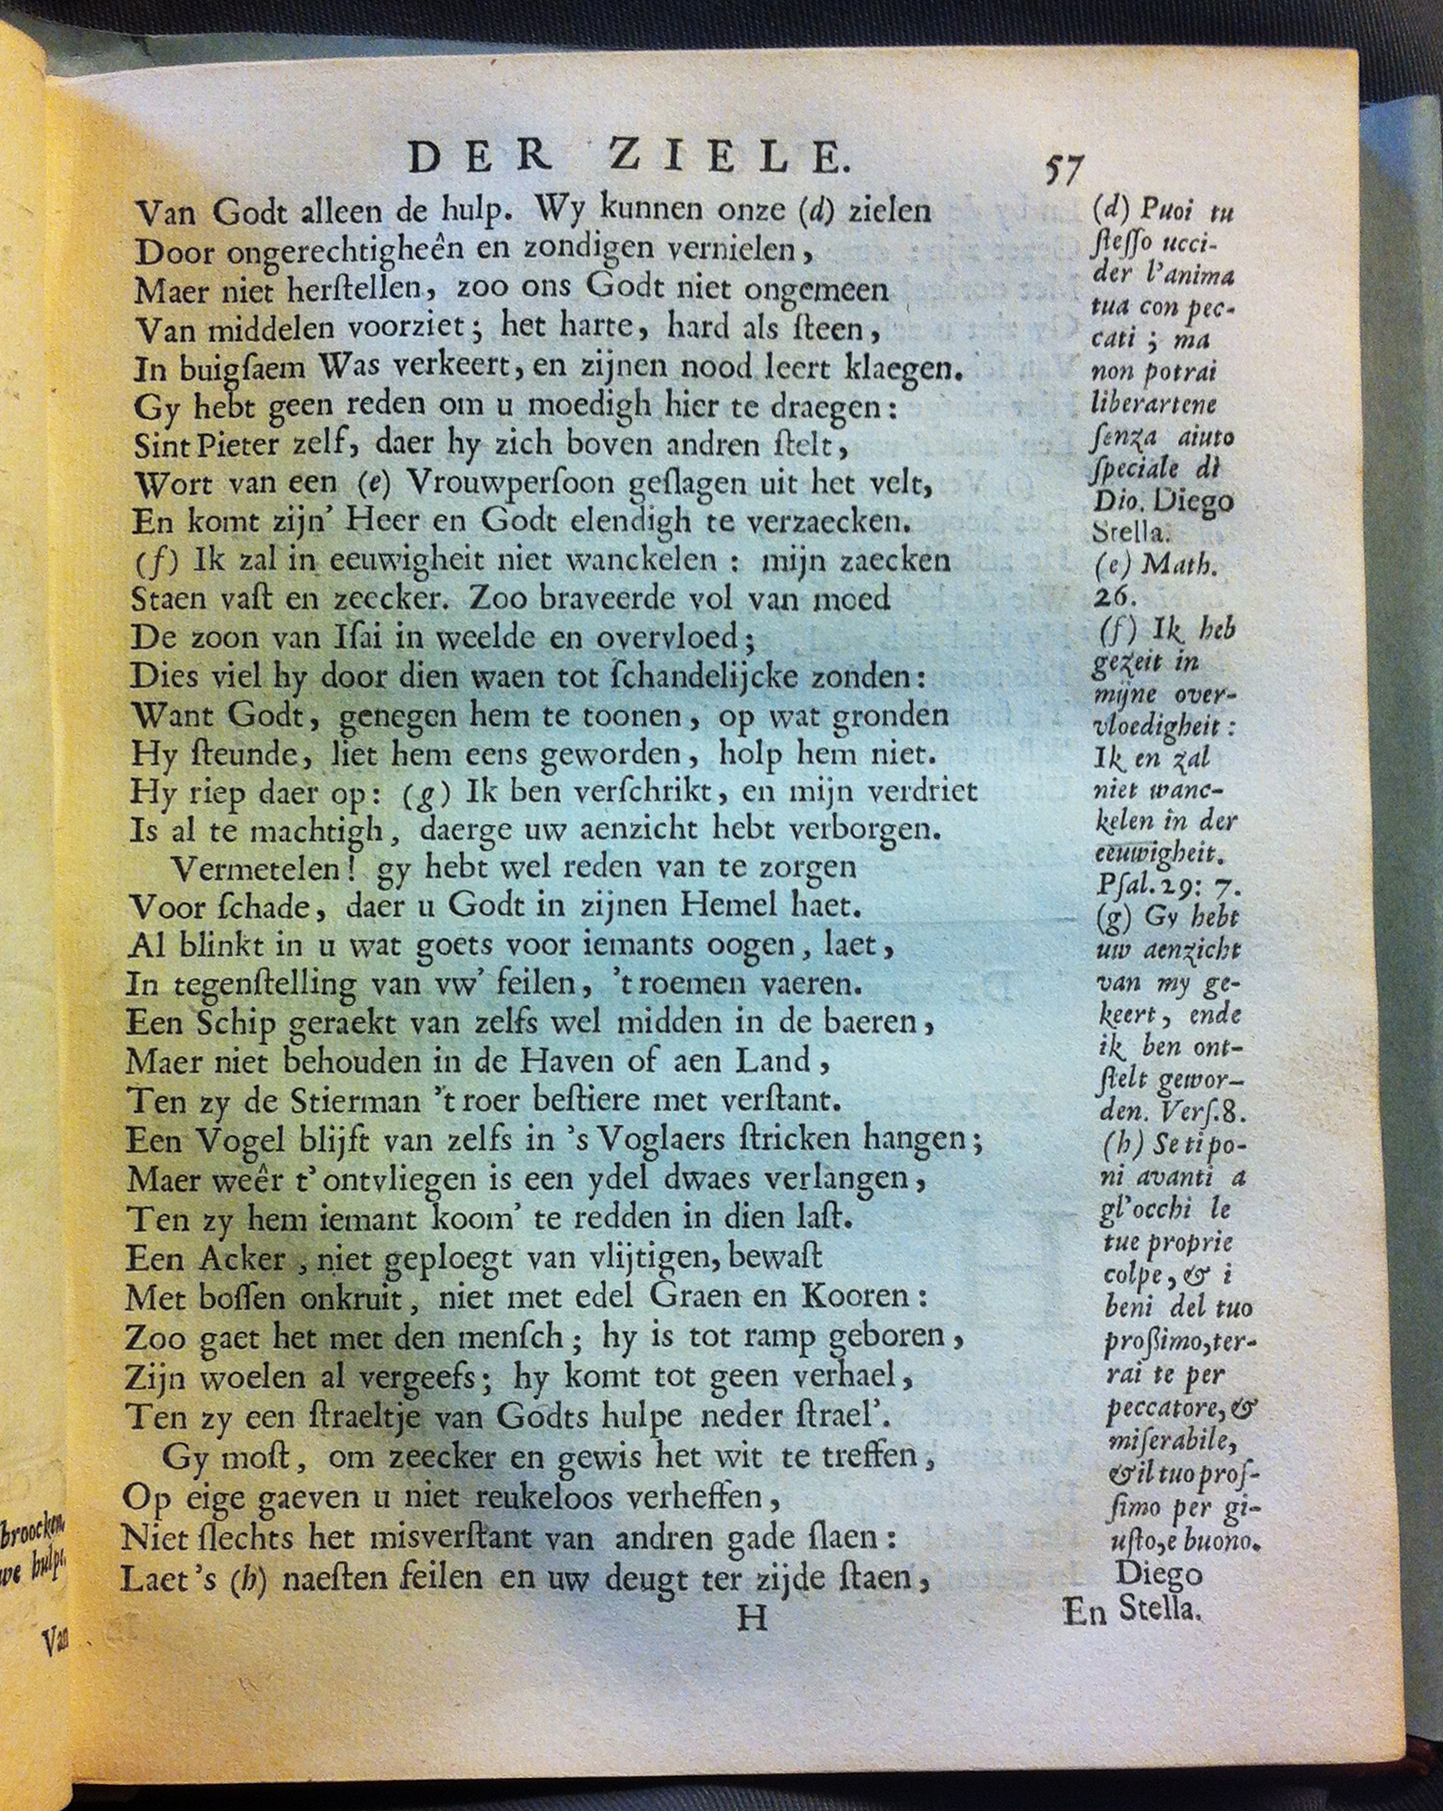 DER ZIELE. 57
Van Godt alleen de hulp. Wy kunnen onze (d) zielen
Door ongerechtigheên en zondigen vernielen,
Maer niet herſtellen, zoo ons Godt niet ongemeen
Van middelen voorziet; het harte, hard als ſteen,
In buigſaem Was verkeert, en zijnen nood leert klaegen.
Gy hebt geen reden om u moedigh hier te draegen:
Sint Pieter zelf, daer hy zich boven andren ſtelt,
Wort van een (e) Vrouwperſoon geſlagen uit het velt,
En komt zijn' Heer en Godt elendigh te verzaecken.
(f) Ik zal in eeuwigheit niet wanckelen : mijn zaecken
Staen vaſt en zeecker. Zoo braveerde vol van moed
De zoon van Iſai in weelde en overvloed;
Dies viel hy door dien waen tot ſchandelijcke zonden:
Want Godt, genegen hem te toonen, op wat gronden
Hy ſteunde, liet hem eens geworden, holp hem niet.
Hy riep daer op: (g) Ik ben verſchrikt, en mijn verdriet
Is al te machtigh, daerge uw aenzicht hebt verborgen.
Vermetelen! gy hebt wel reden van te zorgen
Voor ſchade, daer u Godt in zijnen Hemel haet.
Al blinkt in u wat goets voor iemants oogen, laet,
In tegenſtelling van vw' feilen, 't roemen vaeren.
Een Schip geraekt van zelfs wel midden in de baeren,
Maer niet behouden in de Haven of aen Land,
Ten zy de Stierman 't roer beſtiere met verſtant.
Een Vogel blijft van zelfs in 's Voglaers ſtricken hangen;
Maer weêr t' ontvliegen is een ydel dwaes verlangen,
Ten zy hem iemant koom' te redden in dien laſt.
Een Acker, niet geploegt van vlijtigen, bewaſt
Met boſſen onkruit, niet met edel Graen en Kooren:
Zoo gaet het met den menſch; hy is tot ramp geboren,
Zijn woelen al vergeefs; hy komt tot geen verhael,
Ten zy een ſtraeltje van Godts hulpe neder ſtrael'.
Gy moſt, om zeecker en gewis het wit te treffen,
Op eige gaeven u niet reukeloos verheffen,
Niet ſlechts het misverſtant van andren gade ſlaen:
Laet 's (h) naeſten feilen en uw deugt ter zijde ſtaen,
H
En
(d) Puoi tu
ſteſſo ucci-
der l'anima
tua con pec-
cati ; ma
non potrai
liberartene
ſenza aiuto
ſpeciale di
Dio. Diego
Stella.
(e) Math.
26.
(f) Ik heb
gezeit in
mijne over-
vloedigheit:
Ik en zal
niet wanc-
kelen in der
eeuwigheit.
Pſal. 29: 7.
(g) Gy hebt
uw aenzicht
van my ge-
keert, ende
ik ben ont-
ſtelt gewor-
den. Verſ. 8.
(h) Se ti po-
ni avanti a
gl'occhi le
tue proprie
colpe, & i
beni del tuo
proßimo, ter-
rai te per
peccatore, &
miſerabile,
& il tuo proſ-
ſimo per gi-
uſto, e buono.
Diego
Stella.
broocken,
we hulpe,
Van